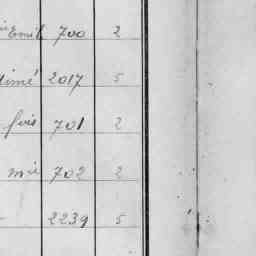 Emil 700 2
timé 2017 5
fois 701 2
mié 702 2
2239 5